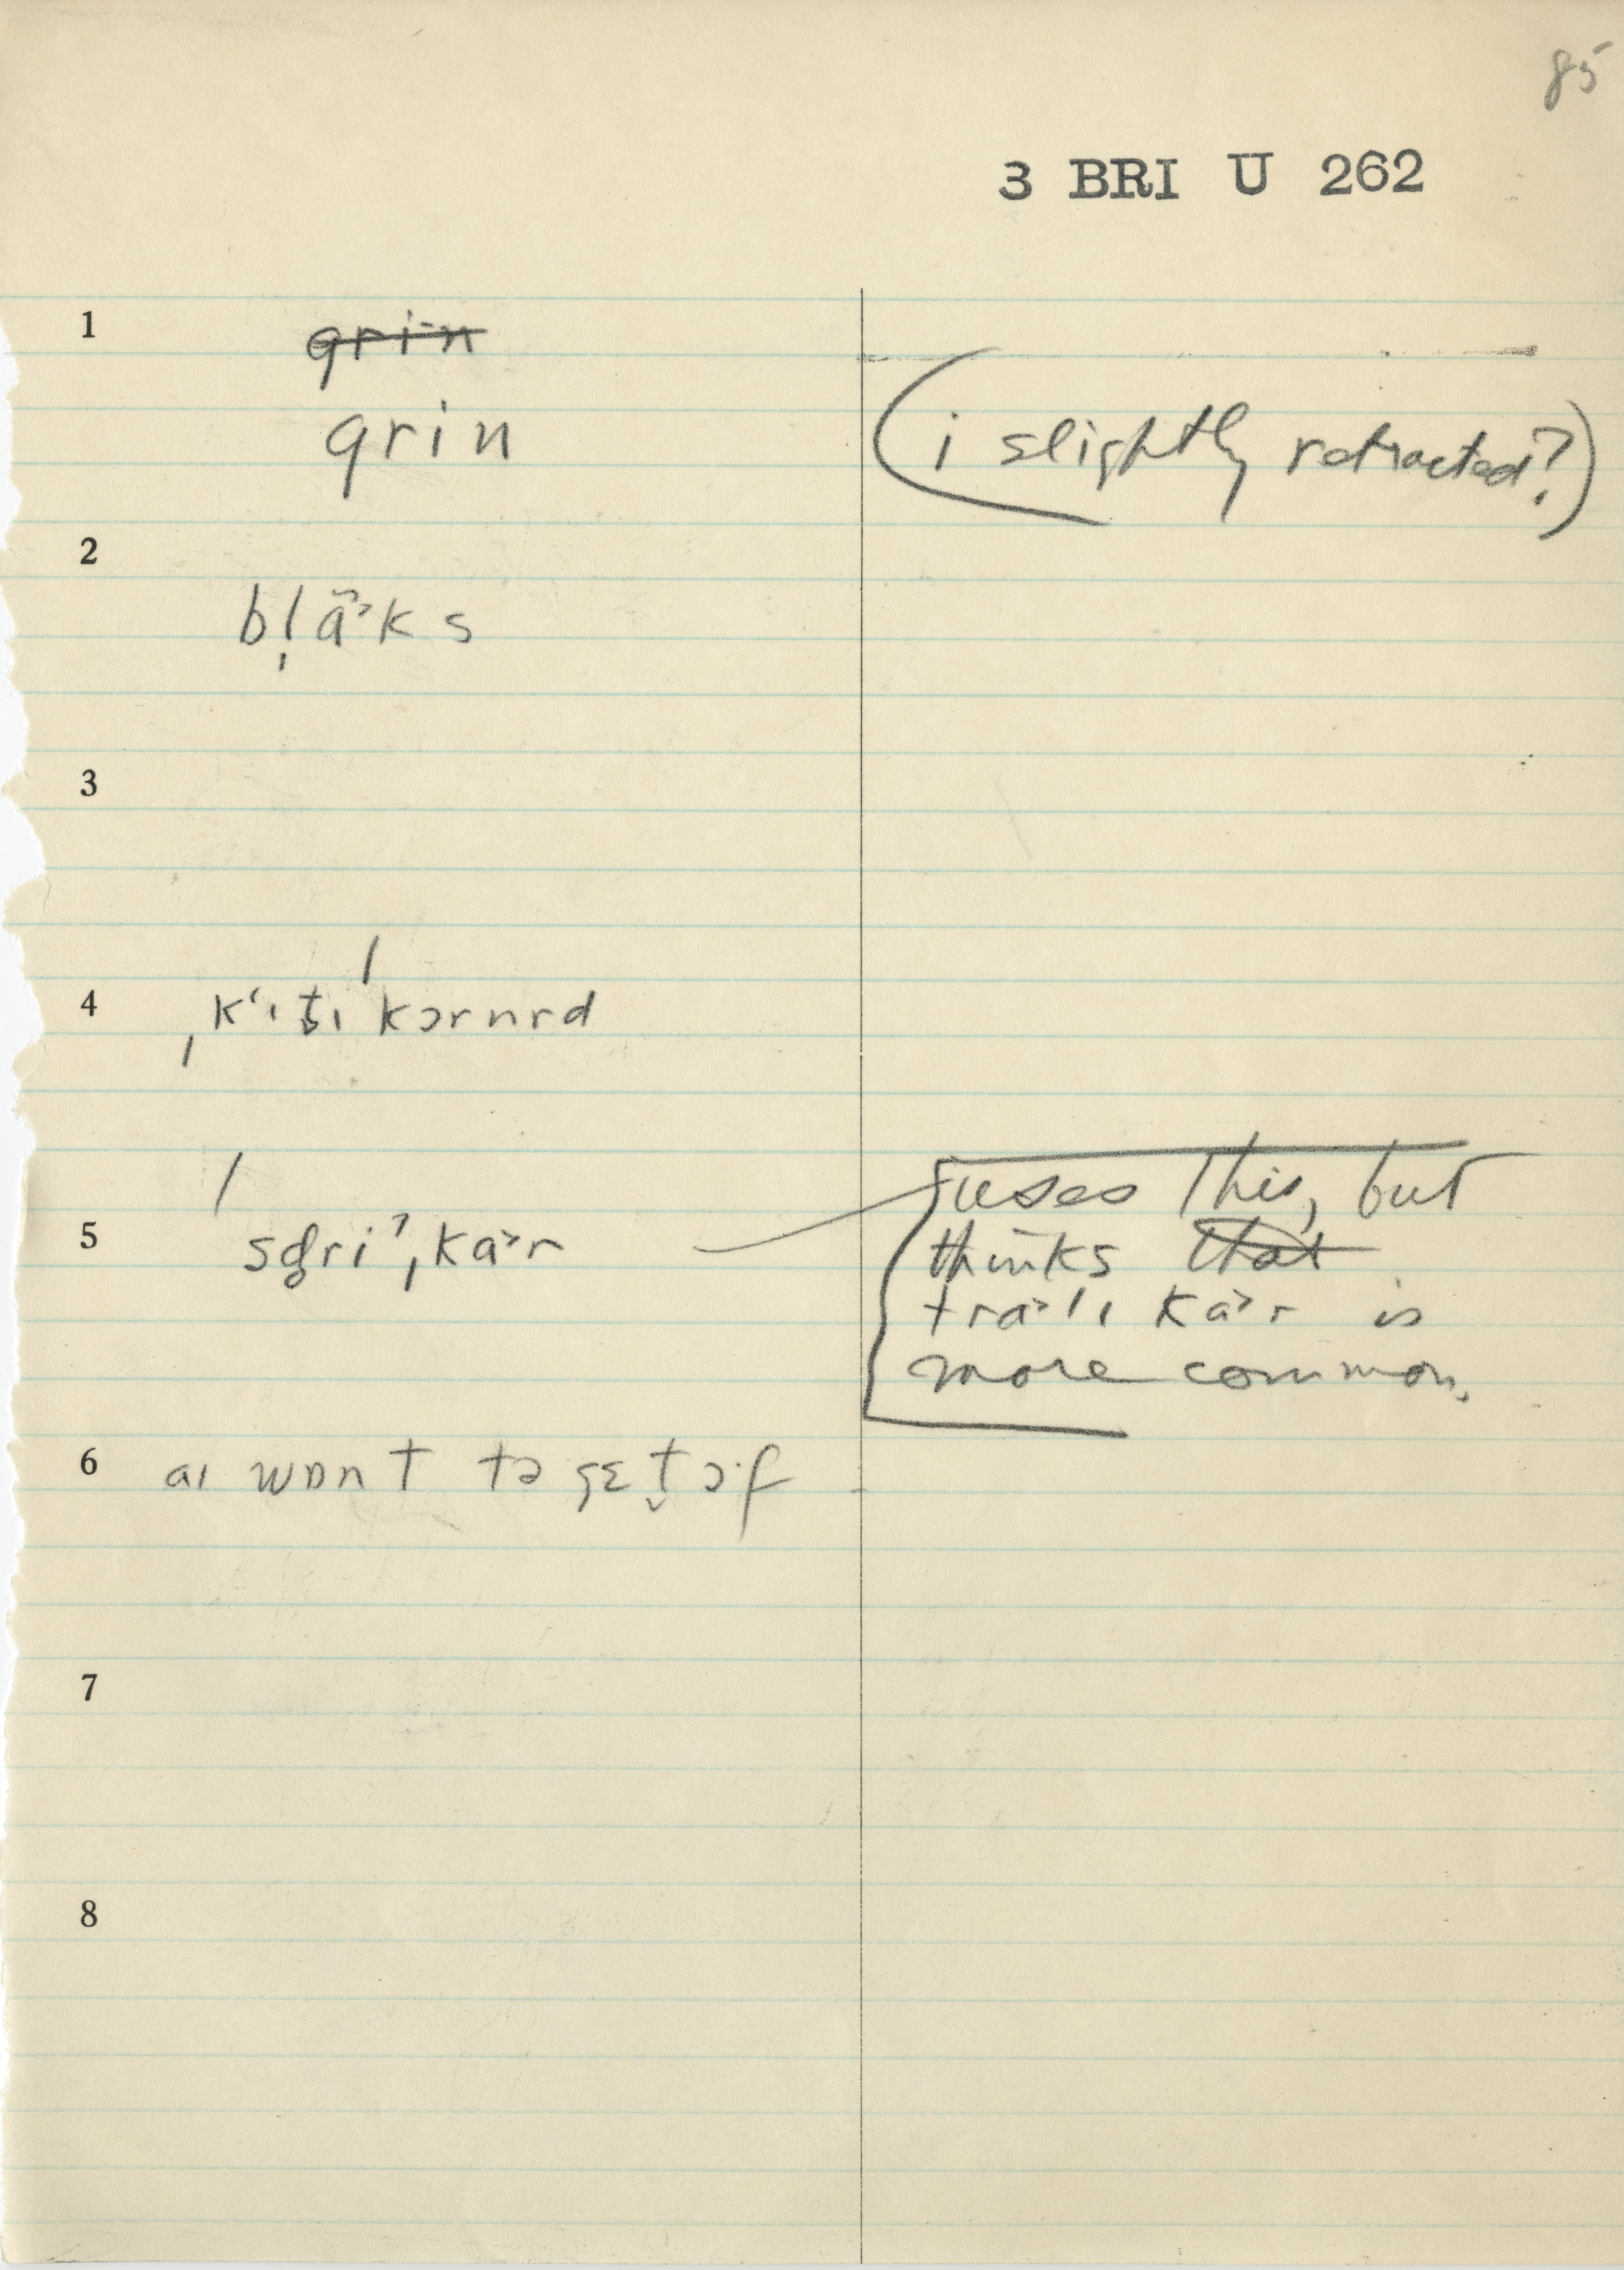 85
3 BRI U 262
1 grin
grin (i slightly retracted?)
2 bl̩ɑ̃˃ks
3
4 ˌkʻɪt̬ɪˈkɔrnrd
5 ˈsd̥riˀˌkɑ˃r uses this, but
thinks that
trɑ˃lɪ kɑ˃r is
more common.
6 aɪ wɒnt tə gɛt̬ ɔ·f
7
8